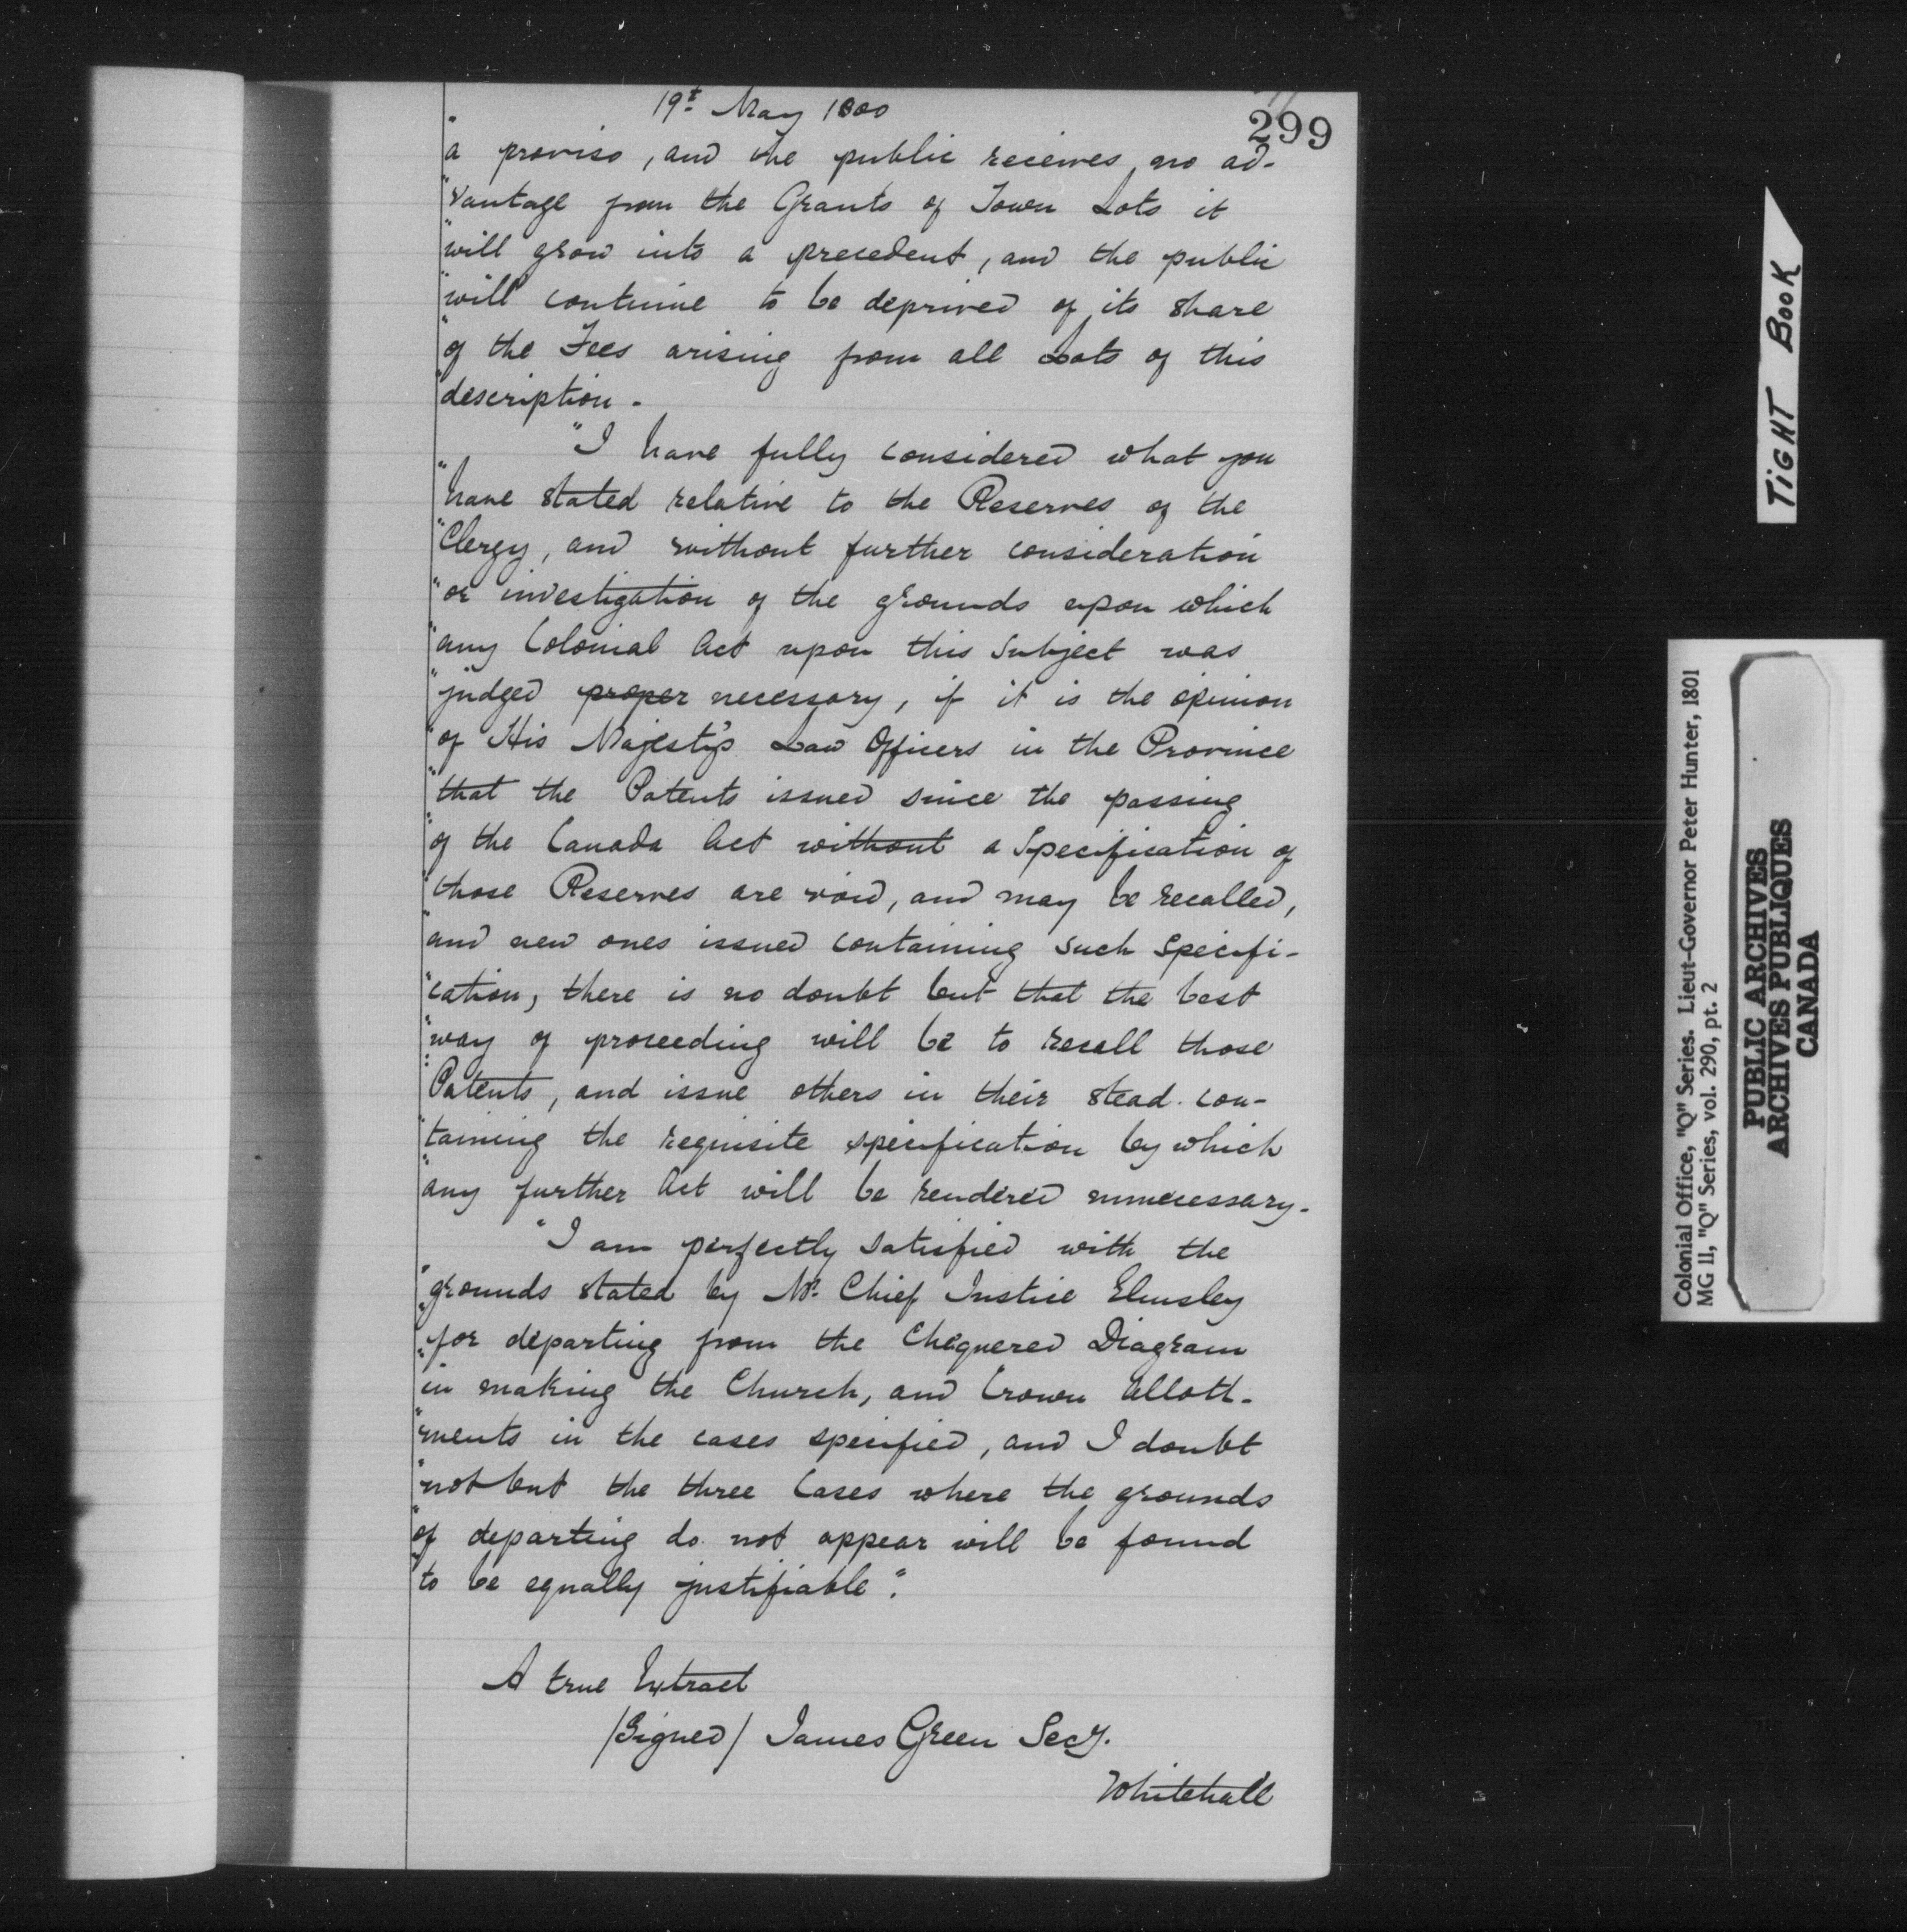 19t May 1800
299
"a proviso, and the public receives no ad-
"vantage from the Grants of Town Lots it
"will grow into a precedent, and the public
"will continue to be deprived of its share
"of the Fees arising from all Lots of this
"description -
"I have fully considered what you
"have stated relative to the Reserves of the
"Clergy, and without further consideration
"or investigation of the grounds upon which
"any Colonial Act upon this Subject was
"judged proper necessary, if it is the opinion
"of His Majesty's Law Officers in the Province
"that the Patents issued since the passing
"of the Canada Act without a Specification of
"those Reserves are void, and may be recalled,
"and new ones issued containing such specifi-
"cation, there is no doubt but that the best
"way of proceeding will be to recall those
"Patents, and issue others in their stead con-
"taining the requisite specification by which
"any further Act will be rendered unnecessary.
"I am perfectly satisfied with the
"grounds stated by Mr. Chief Justice Elmsley
"for departing from the Chequered Diagram
"in making the Church, and Crown Allott-
"ments in the cases specified, and I doubt
"not but the three Cases where the grounds
"of departing do not appear will be found
"to be equally justifiable".
A true Extract
/Signed/ James Green Secy.
Whitehall
TIGHT BOOK
Colonial Office, "Q" Series. Lieut-Governor Peter Hunter, 1801
MG 11, "Q" Series, vol. 290, pt. 2
PUBLIC ARCHIVES
ARCHIVES PUBLIQUES
CANADA